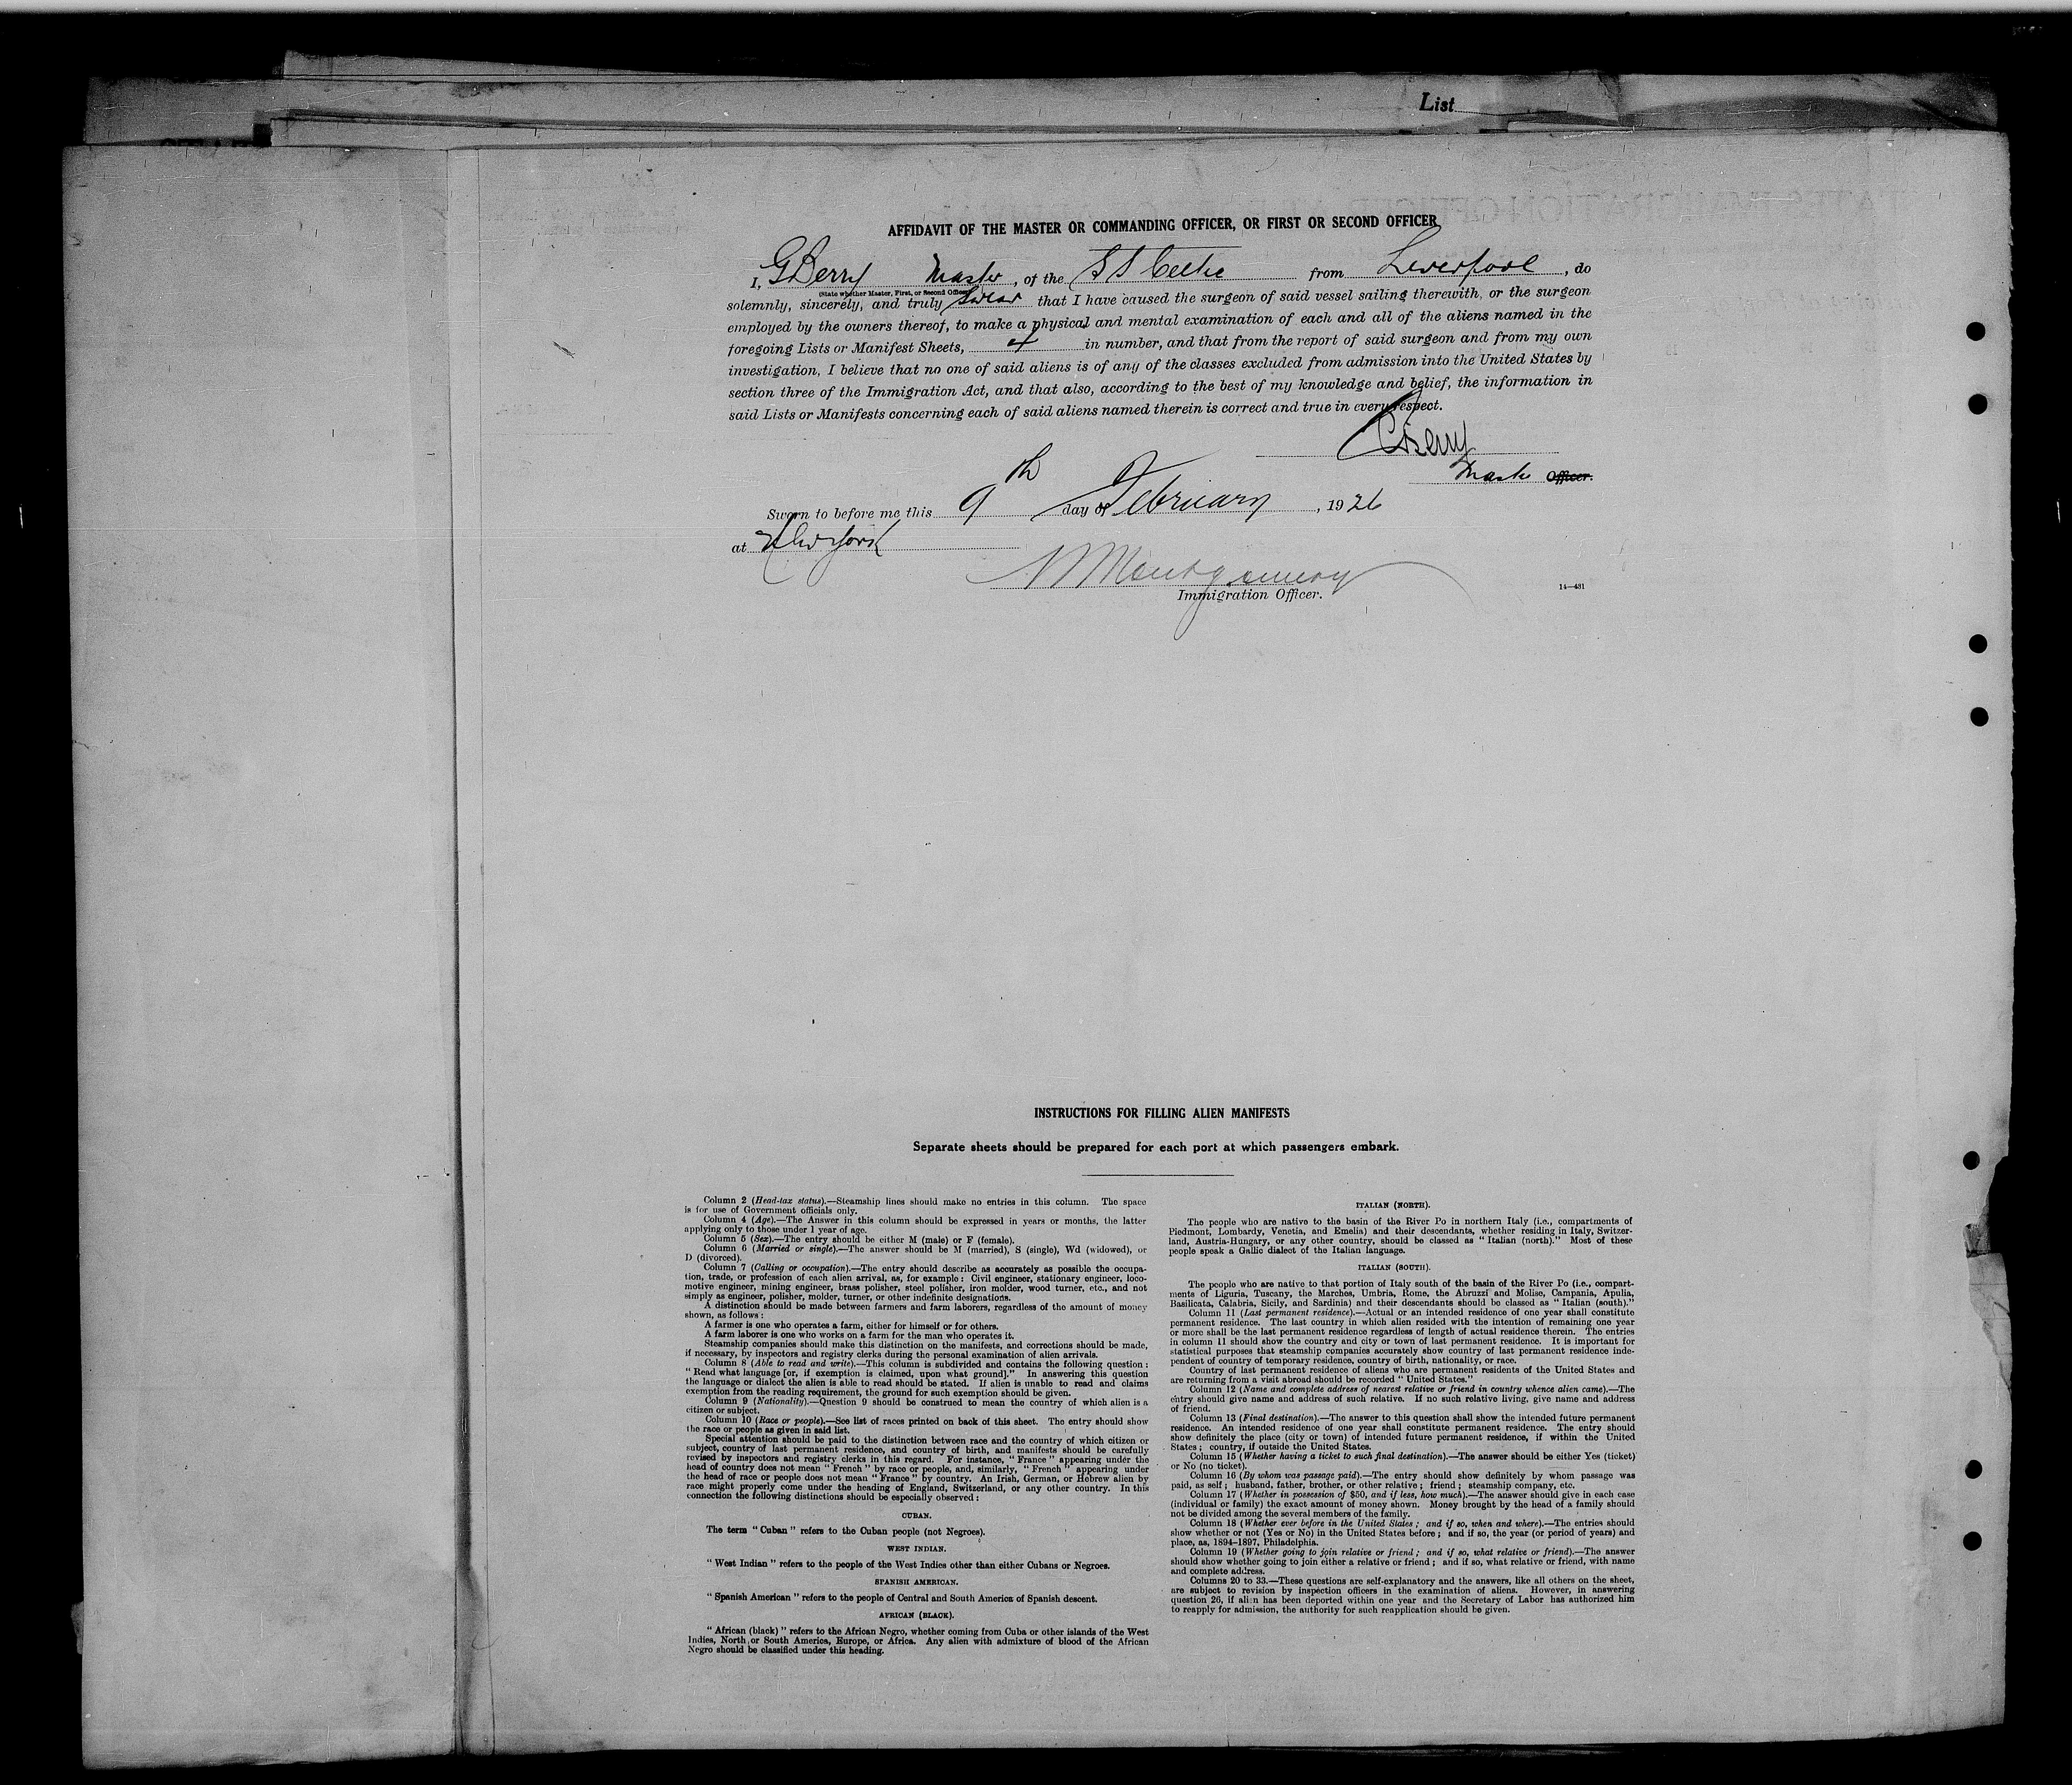 List
AFFIDAVIT OF THE MASTER OR COMMANDING OFFICER, OR FIRST OR SECOND OFFICER
I, G Berry Master, of the S S Celtic from Liverpool, do
(State whether Master, First, or Second Officer)
solemnly, sincerely, and truly swear that I have caused the surgeon of said vessel sailing therewith, or the surgeon
employed by the owners thereof, to make a physical and mental examination of each and all of the aliens named in the
foregoing Lists or Manifest Sheets, 4 in number, and that from the report of said surgeon and from my own
investigation, I believe that no one of said aliens is of any of the classes excluded from admission into the United States by
section three of the Immigration Act, and that also, according to the best of my knowledge and belief, the information in
said Lists or Manifests concerning each of said aliens named therein is correct and true in every respect.
G Berry
Master Officer.
Sworn to before me this 9th day of February, 1926
at New York
Montgomery
Immigration Officer.
14—481
INSTRUCTIONS FOR FILLING ALIEN MANIFESTS
Separate sheets should be prepared for each port at which passengers embark.
Column 2 (Head-tax status).—Steamship lines should make no entries in this column. The space
is for use of Government officials only.
Column 4 (Age).—The Answer in this column should be expressed in years or months, the latter
applying only to those under 1 year of age.
Column 5 (Sex).—The entry should be either M (male) or F (female).
Column 6 (Married or single).—The answer should be M (married), S (single), Wd (widowed), or
D (divorced).
Column 7 (Calling or occupation).—The entry should describe as accurately as possible the occupa-
tion, trade, or profession of each alien arrival, as, for example: Civil engineer, stationary engineer, loco-
motive engineer, mining engineer, brass polisher, steel polisher, iron molder, wood turner, etc., and not
simply as engineer, polisher, molder, turner, or other indefinite designations.
A distinction should be made between farmers and farm laborers, regardless of the amount of money
shown, as follows:
A farmer is one who operates a farm, either for himself or for others.
A farm laborer is one who works on a farm for the man who operates it.
Steamship companies should make this distinction on the manifests, and corrections should be made,
if necessary, by inspectors and registry clerks during the personal examination of alien arrivals.
Column 8 (Able to read and write).—This column is subdivided and contains the following question:
"Read what language [or, if exemption is claimed, upon what ground]." In answering this question
the language or dialect the alien is able to read should be stated. If alien is unable to read and claims
exemption from the reading requirement, the ground for such exemption should be given.
Column 9 (Nationality).—Question 9 should be construed to mean the country of which alien is a
citizen or subject.
Column 10 (Race or people).—See list of races printed on back of this sheet. The entry should show
the race or people as given in said list.
Special attention should be paid to the distinction between race and the country of which citizen or
subject, country of last permanent residence, and country of birth, and manifests should be carefully
revised by inspectors and registry clerks in this regard. For instance, "France" appearing under the
head of country does not mean "French" by race or people, and, similarly, "French" appearing under
the head of race or people does not mean "France" by country. An Irish, German, or Hebrew alien by
race might properly come under the heading of England, Switzerland, or any other country. In this
connection the following distinctions should be especially observed:
CUBAN.
The term "Cuban" refers to the Cuban people (not Negroes).
WEST INDIAN.
"West Indian" refers to the people of the West Indies other than either Cubans or Negroes.
SPANISH AMERICAN.
"Spanish American" refers to the people of Central and South America of Spanish descent.
AFRICAN (BLACK).
"African (black)" refers to the African Negro, whether coming from Cuba or other islands of the West
Indies, North or South America, Europe, or Africa. Any alien with admixture of blood of the African
Negro should be classified under this heading.
ITALIAN (NORTH).
The people who are native to the basin of the River Po in northern Italy (i.e., compartments of
Piedmont, Lombardy, Venetia, and Emelia) and their descendants, whether residing in Italy, Switzer-
land, Austria-Hungary, or any other country, should be classed as "Italian (north)." Most of these
people speak a Gallic dialect of the Italian language.
ITALIAN (SOUTH).
The people who are native to that portion of Italy south of the basin of the River Po (i.e., compart-
ments of Liguria, Tuscany, the Marches, Umbria, Rome, the Abruzzi and Molise, Campania, Apulia,
Basilicata, Calabria, Sicily, and Sardinia) and their descendants should be classed as "Italian (south)."
Column 11 (Last permanent residence).—Actual or an intended residence of one year shall constitute
permanent residence. The last country in which alien resided with the intention of remaining one year
or more shall be the last permanent residence regardless of length of actual residence therein. The entries
in column 11 should show the country and city or town of last permanent residence. It is important for
statistical purposes that steamship companies accurately show country of last permanent residence inde-
pendent of country of temporary residence, country of birth, nationality, or race.
Country of last permanent residence of aliens who are permanent residents of the United States and
are returning from a visit abroad should be recorded "United States."
Column 12 (Name and complete address of nearest relative or friend in country whence alien came).—The
entry should give name and address of such relative. If no such relative living, give name and address
of friend.
Column 13 (Final destination).—The answer to this question shall show the intended future permanent
residence. An intended residence of one year shall constitute permanent residence. The entry should
show definitely the place (city or town) of intended future permanent residence, if within the United
States; country, if outside the United States.
Column 15 (Whether having a ticket to such final destination).—The answer should be either Yes (ticket)
or No (no ticket).
Column 16 (By whom was passage paid).—The entry should show definitely by whom passage was
paid, as self; husband, father, brother, or other relative; friend; steamship company, etc.
Column 17 (Whether in possession of $50, and if less, how much).—The answer should give in each case
(individual or family) the exact amount of money shown. Money brought by the head of a family should
not be divided among the several members of the family.
Column 18 (Whether ever before in the United States; and if so, when and where).—The entries should
show whether or not (Yes or No) in the United States before; and if so, the year (or period of years) and
place, as, 1894-1897, Philadelphia.
Column 19 (Whether going to join relative or friend; and if so, what relative or friend).—The answer
should show whether going to join either a relative or friend; and if so, what relative or friend, with name
and complete address.
Columns 20 to 33.—These questions are self-explanatory and the answers, like all others on the sheet,
are subject to revision by inspection officers in the examination of aliens. However, in answering
question 26, if alien has been deported within one year and the Secretary of Labor has authorized him
to reapply for admission, the authority for such reapplication should be given.